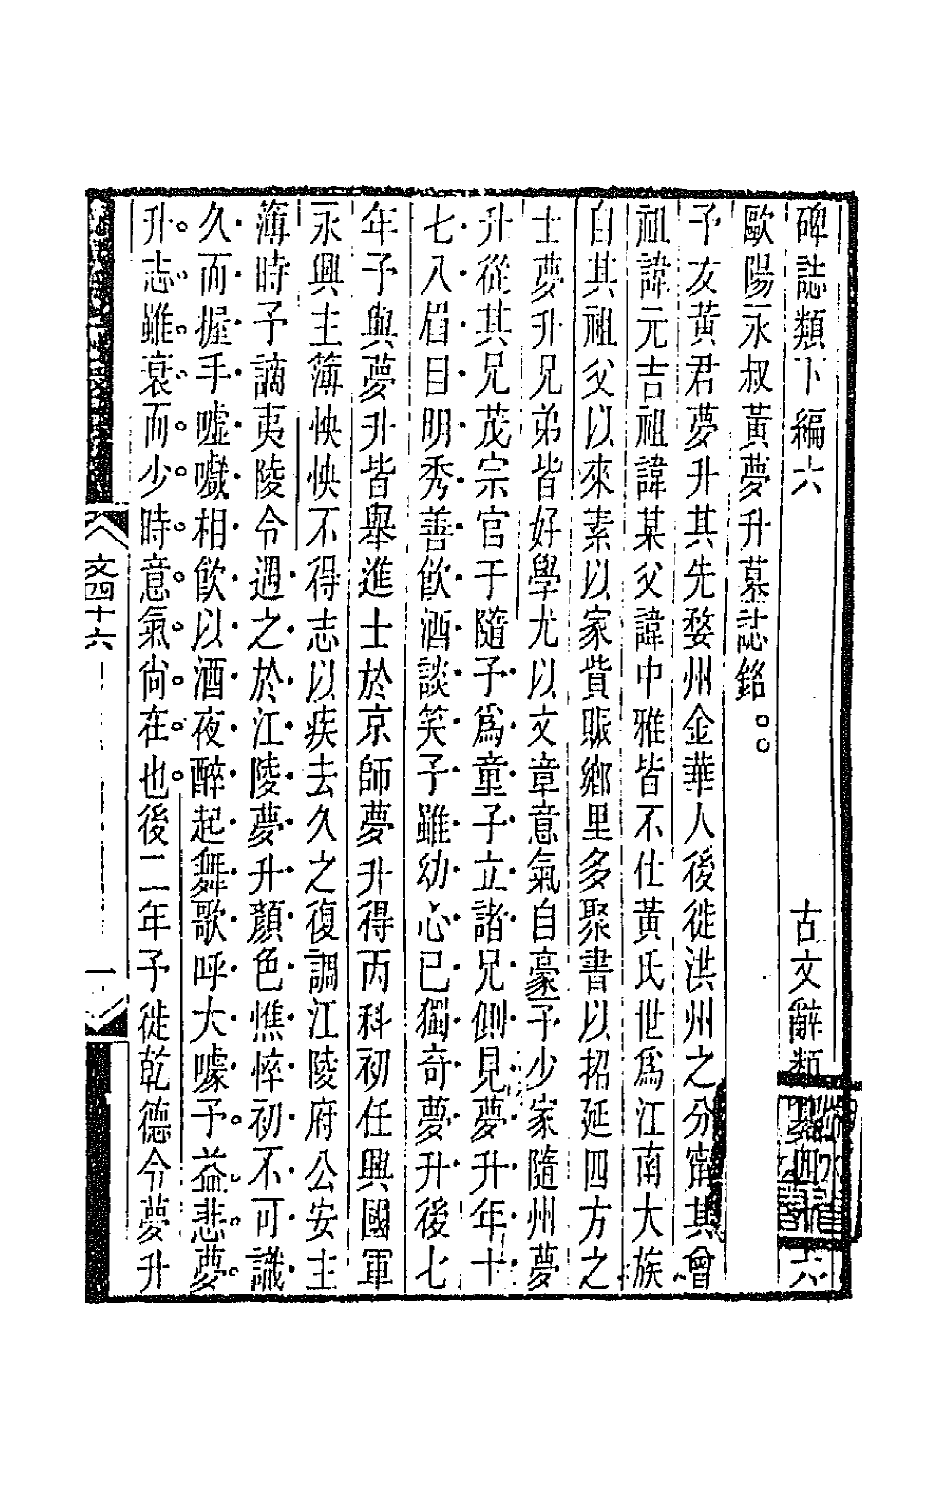 碑誌類下編六　古文辭類四十六
歐陽永叔黃夢升墓誌銘。。
予友黃君夢升其先婺州金華人後徙洪州之分甯其曾
祖諱元吉祖諱某父諱中雅皆不仕黃氏世爲江南大族
自其祖父以來素以家貲賑鄉里多聚書以招延四方之
士夢升兄弟皆好學尤以文章意氣自豪予少家隨州夢
升從其兄茂宗官于隨予爲童子立諸兄側見夢升年十
七八眉目明秀善飲酒談笑予雖幼心已獨奇夢升後七
年予與夢升皆舉進士於京師夢升得丙科初任興國軍
永興主簿怏怏不得志以疾去久之復調江陵府公安主
簿時予謫夷陵令遇之於江陵夢升顏色憔悴初不可識
久而握手噓嚱相飲以酒夜醉起舞歌呼大噱予益悲夢
升志雖衰而少時意氣尙在也後二年予徙乾德令夢升
文四十六
一